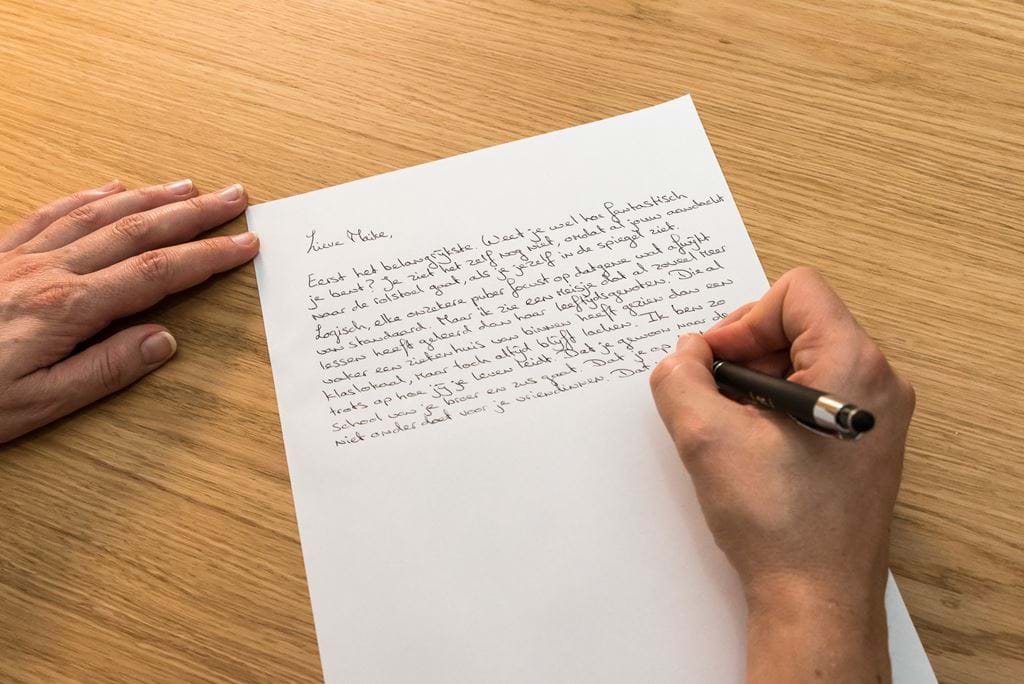 Lieve Maike,
Eerst het belangrijkste. Weet je wel hoe fantastisch
je bent? Je ziet het zelf nog niet, omdat al jouw aandacht
naar de rolstoel gaat, als je jezelf in de spiegel ziet.
Logisch, elke onzekere puber focust op datgene wat afwijkt
van standaard. Maar ik zie een meisje dat al zoveel meer
lessen heeft geleerd dan haar leeftijdsgenoten. Die al
vaker een ziekenhuis van binnen heeft gezien dan een
klaslokaal, maar toch altijd blijft lachen. Ik ben zo
trots op hoe jij je leven leidt. Dat je gewoon naar de
school van je broer en zus gaat. Dat je op
niet onder doet voor je vriendinnen. Dat